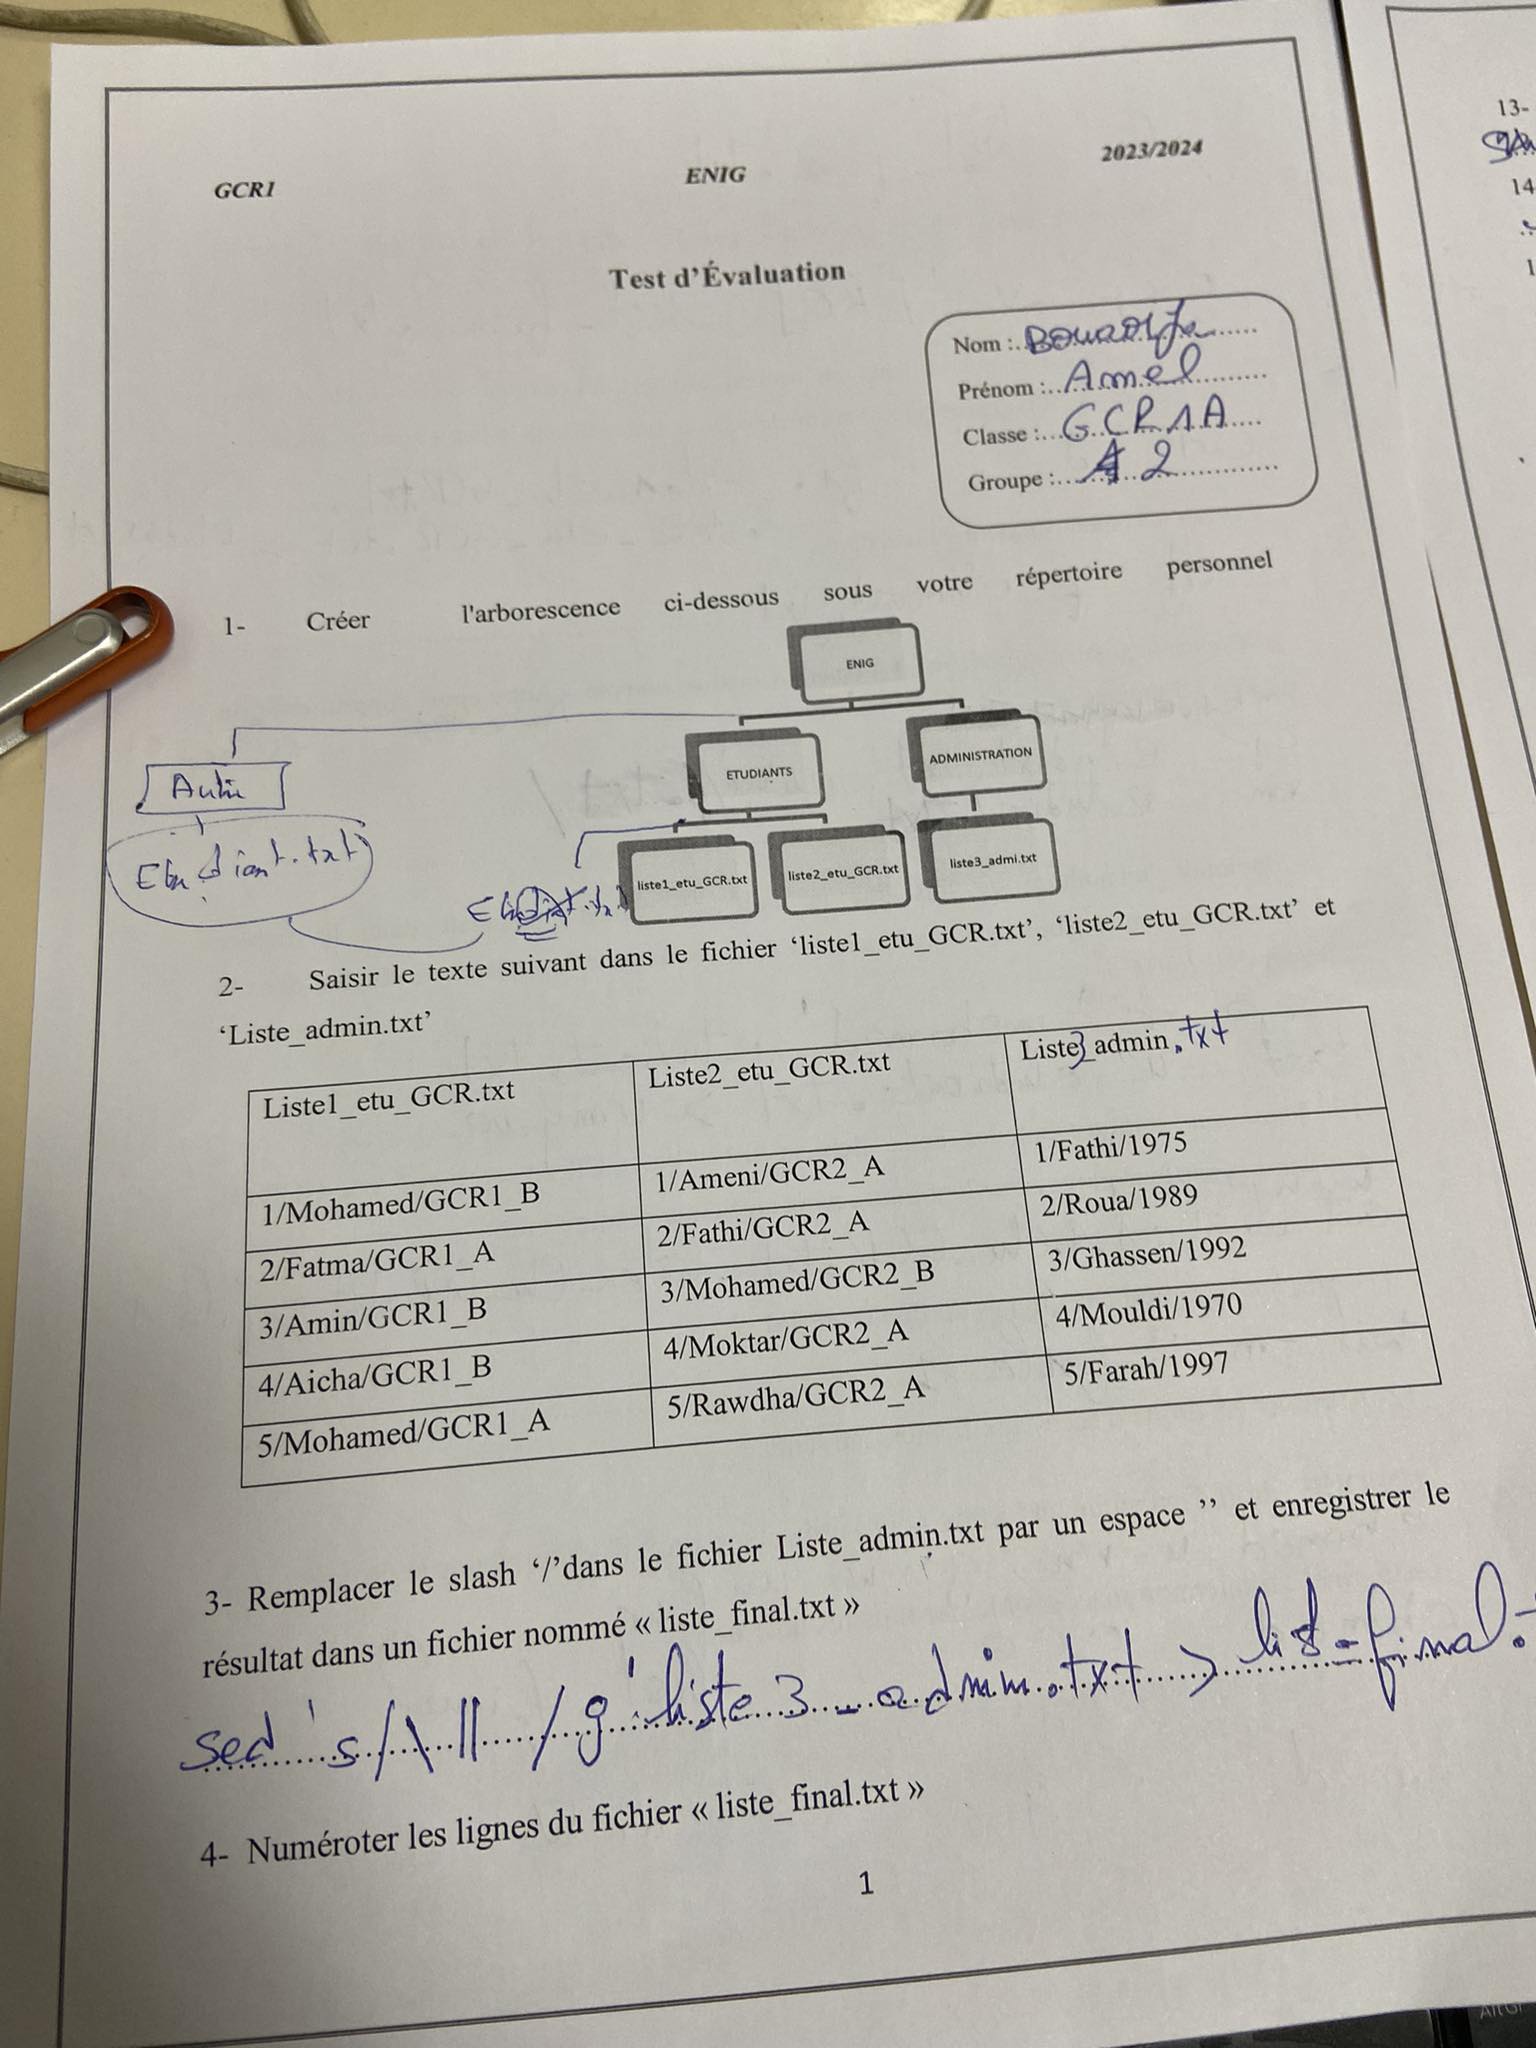 GCR1 ENIG 2023/2024
Test d'Évaluation
Nom :
Prénom : Amel
Classe : GCR1A
Groupe : 2
1- Créer l'arborescence ci-dessous sous votre répertoire personnel
ENIG
ETUDIANTS ADMINISTRATION
Etudiant.txt
liste1_etu_GCR.txt liste2_etu_GCR.txt liste3_admi.txt
2- Saisir le texte suivant dans le fichier ‘liste1_etu_GCR.txt’, ‘liste2_etu_GCR.txt’ et
‘Liste_admin.txt’
Liste1_etu_GCR.txt Liste2_etu_GCR.txt Liste3_admin.txt
1/Mohamed/GCR1_B 1/Ameni/GCR2_A 1/Fathi/1975
2/Fatma/GCR1_A 2/Fathi/GCR2_A 2/Roua/1989
3/Amin/GCR1_B 3/Mohamed/GCR2_B 3/Ghassen/1992
4/Aicha/GCR1_B 4/Moktar/GCR2_A 4/Mouldi/1970
5/Mohamed/GCR1_A 5/Rawdha/GCR2_A 5/Farah/1997
3- Remplacer le slash ‘/’dans le fichier Liste_admin.txt par un espace ’’ et enregistrer le
résultat dans un fichier nommé « liste_final.txt »
sed 's/\// /g' liste3_admin.txt > list_final.t
4- Numéroter les lignes du fichier « liste_final.txt »
1
13-
14
1